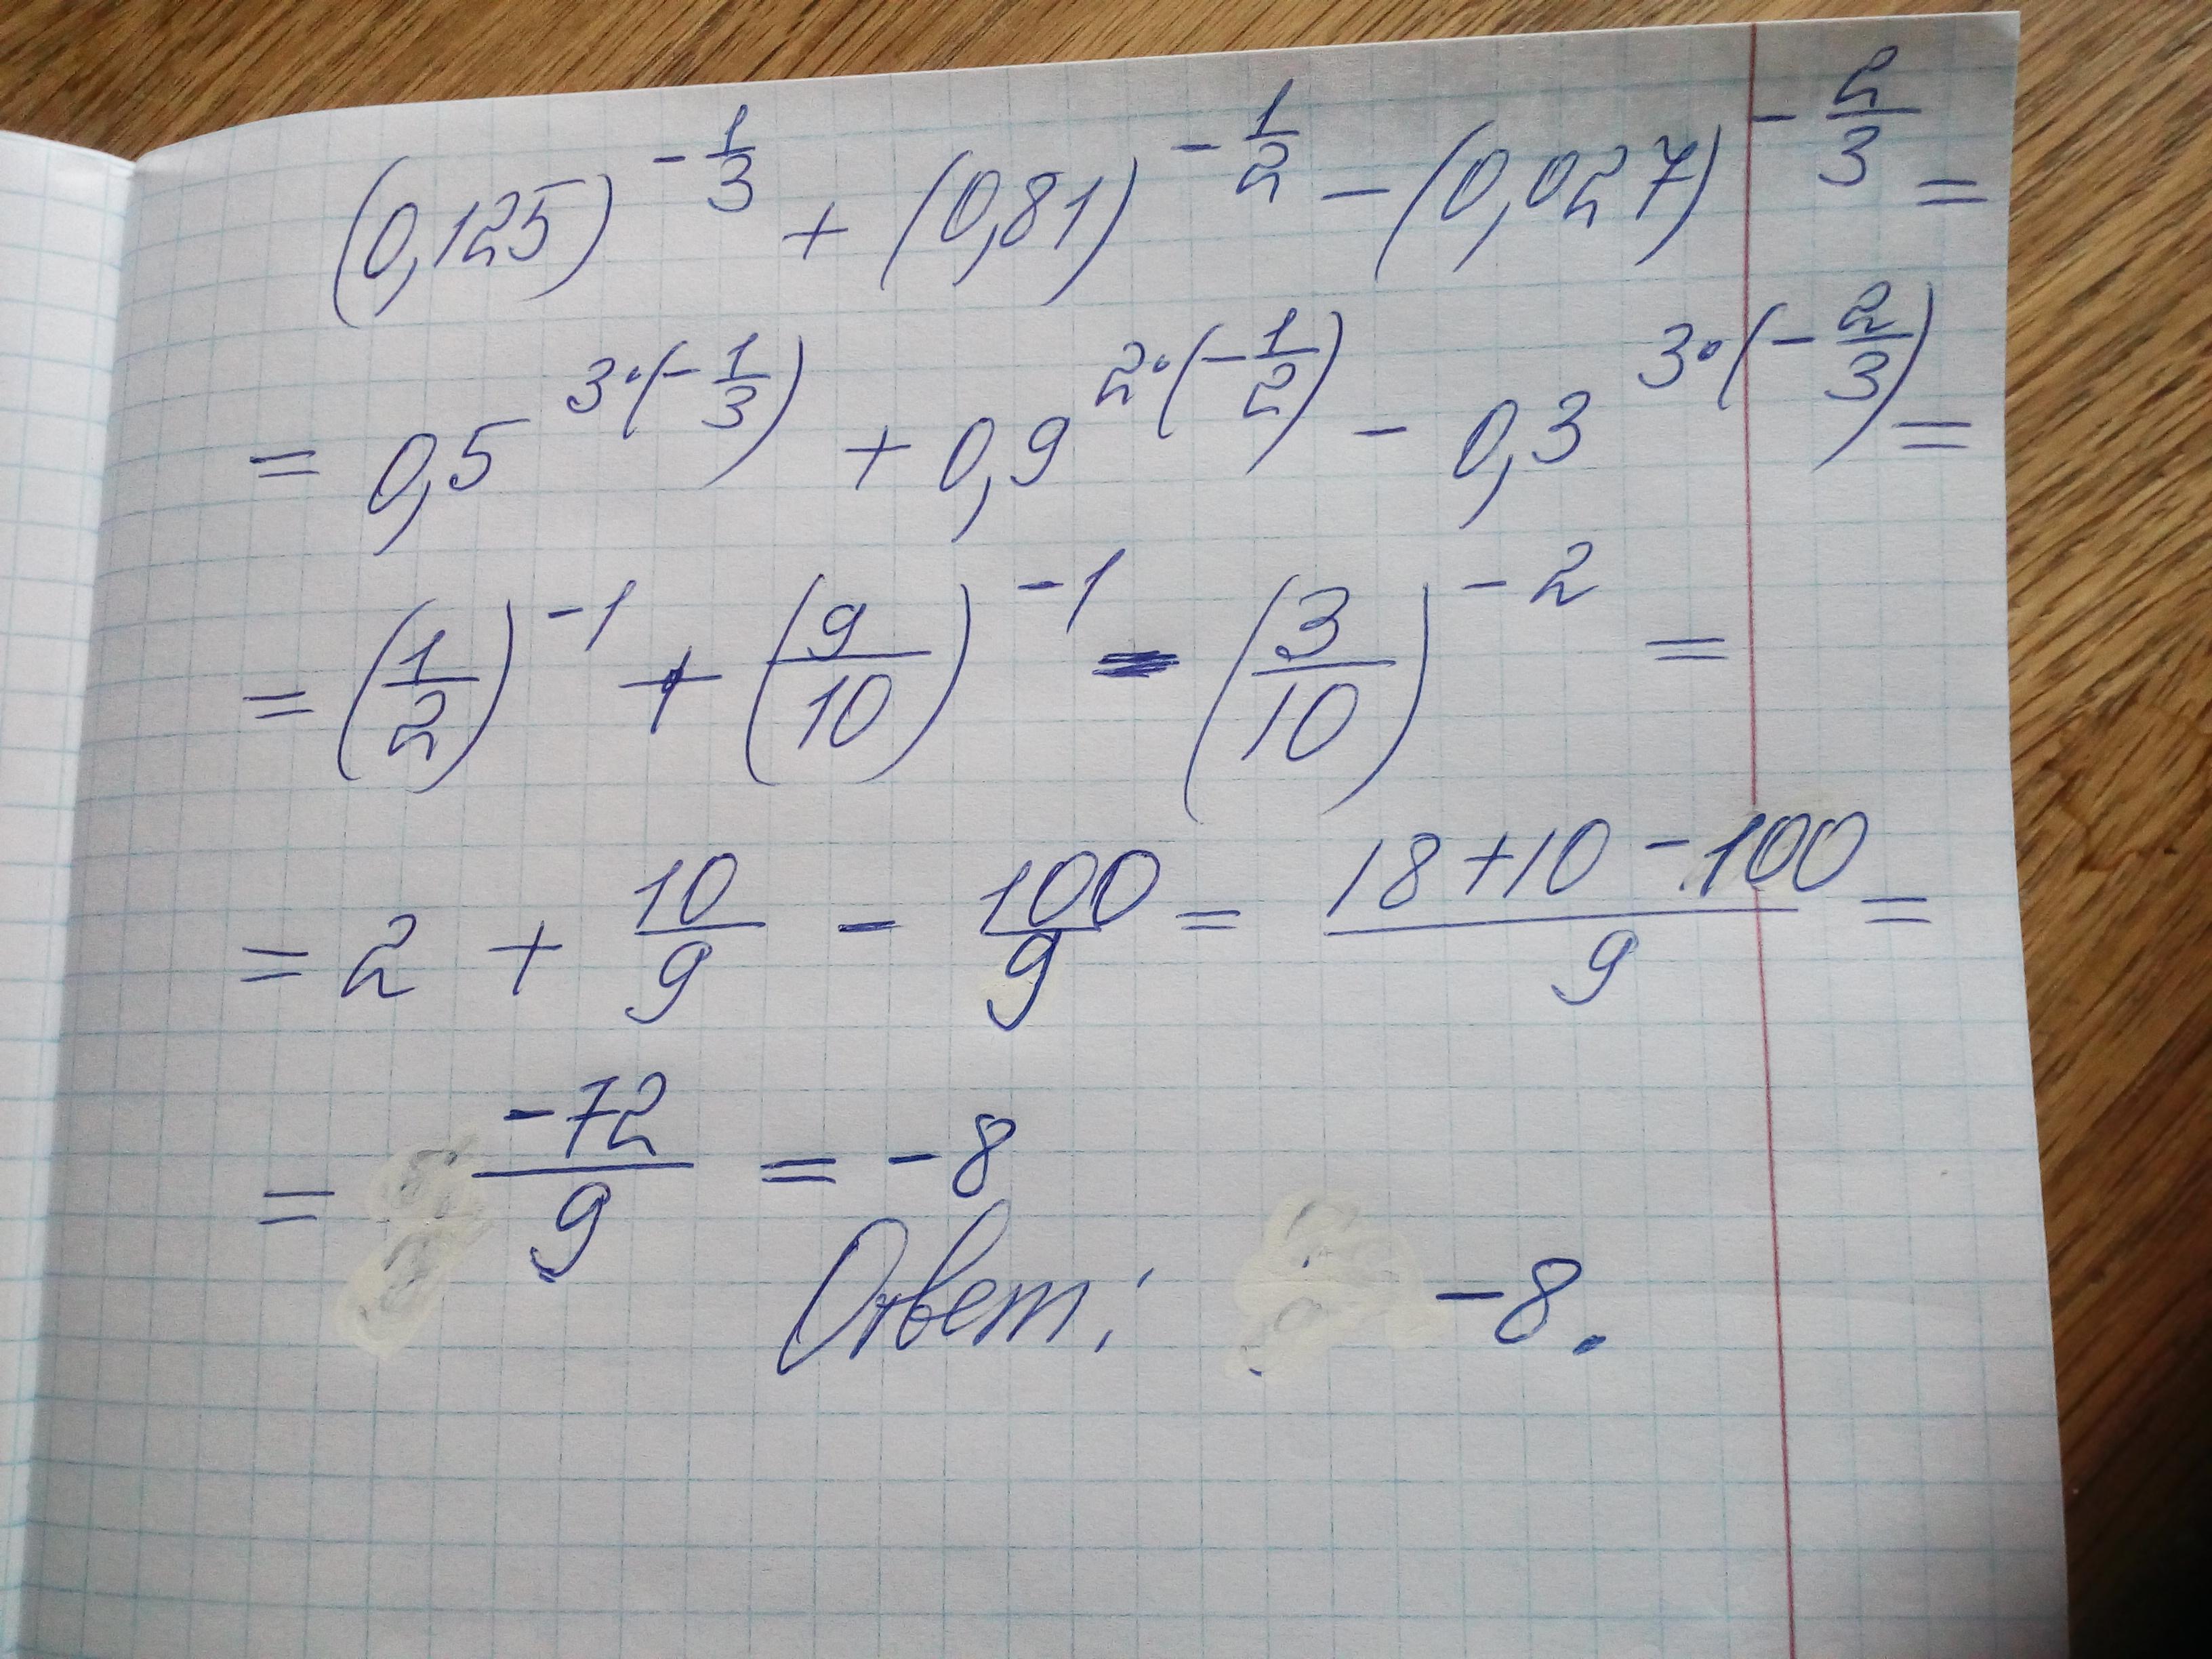 (0,125)^(-1/3) + (0,81)^(-1/2) - (0,027)^(-2/3) =
= 0,5^(3·(-1/3)) + 0,9^(2·(-1/2)) - 0,3^(3·(-2/3)) =
= (1/2)^(-1) + (9/10)^(-1) - (3/10)^(-2) =
= 2 + 10/9 - 100/9 = (18+10-100)/9 =
= -72/9 = -8
Ответ: -8.